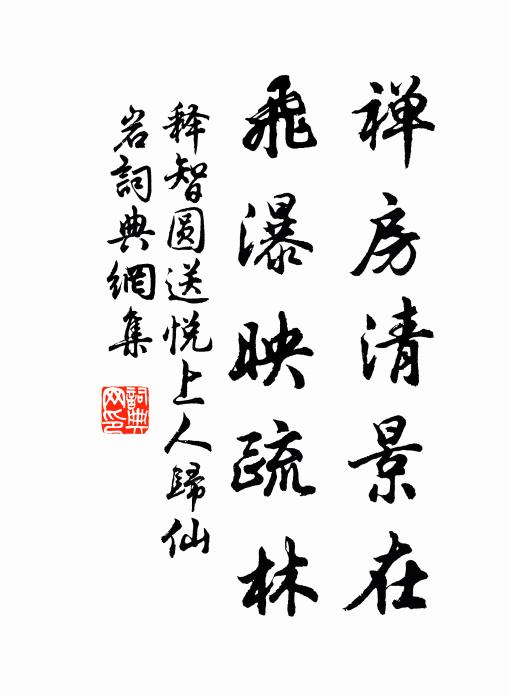 禅房清景在
飛瀑映疏林
释智圆送悦上人歸仙
岩詞典網集
詞典
网印